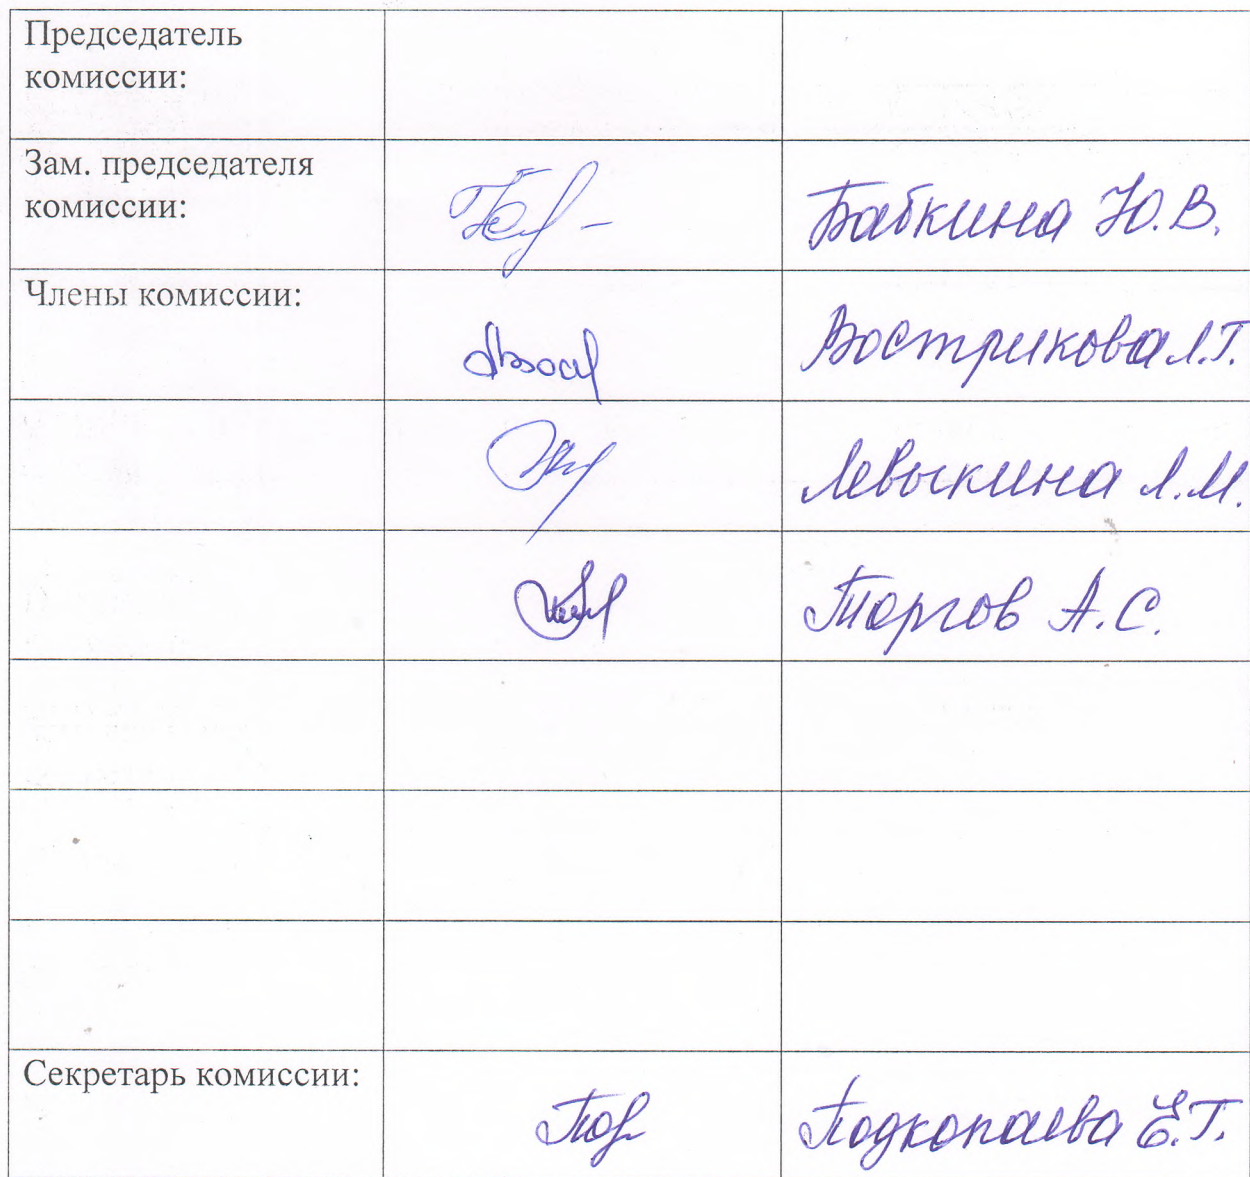 Председатель
комиссии:
Зам. председателя
комиссии:
Бабкина Ю.В.
Члены комиссии:
Вострикова Л.Т.
Левыкина Л.М.
Торгов А.С.
Секретарь комиссии:
Подкопаева Е.Г.